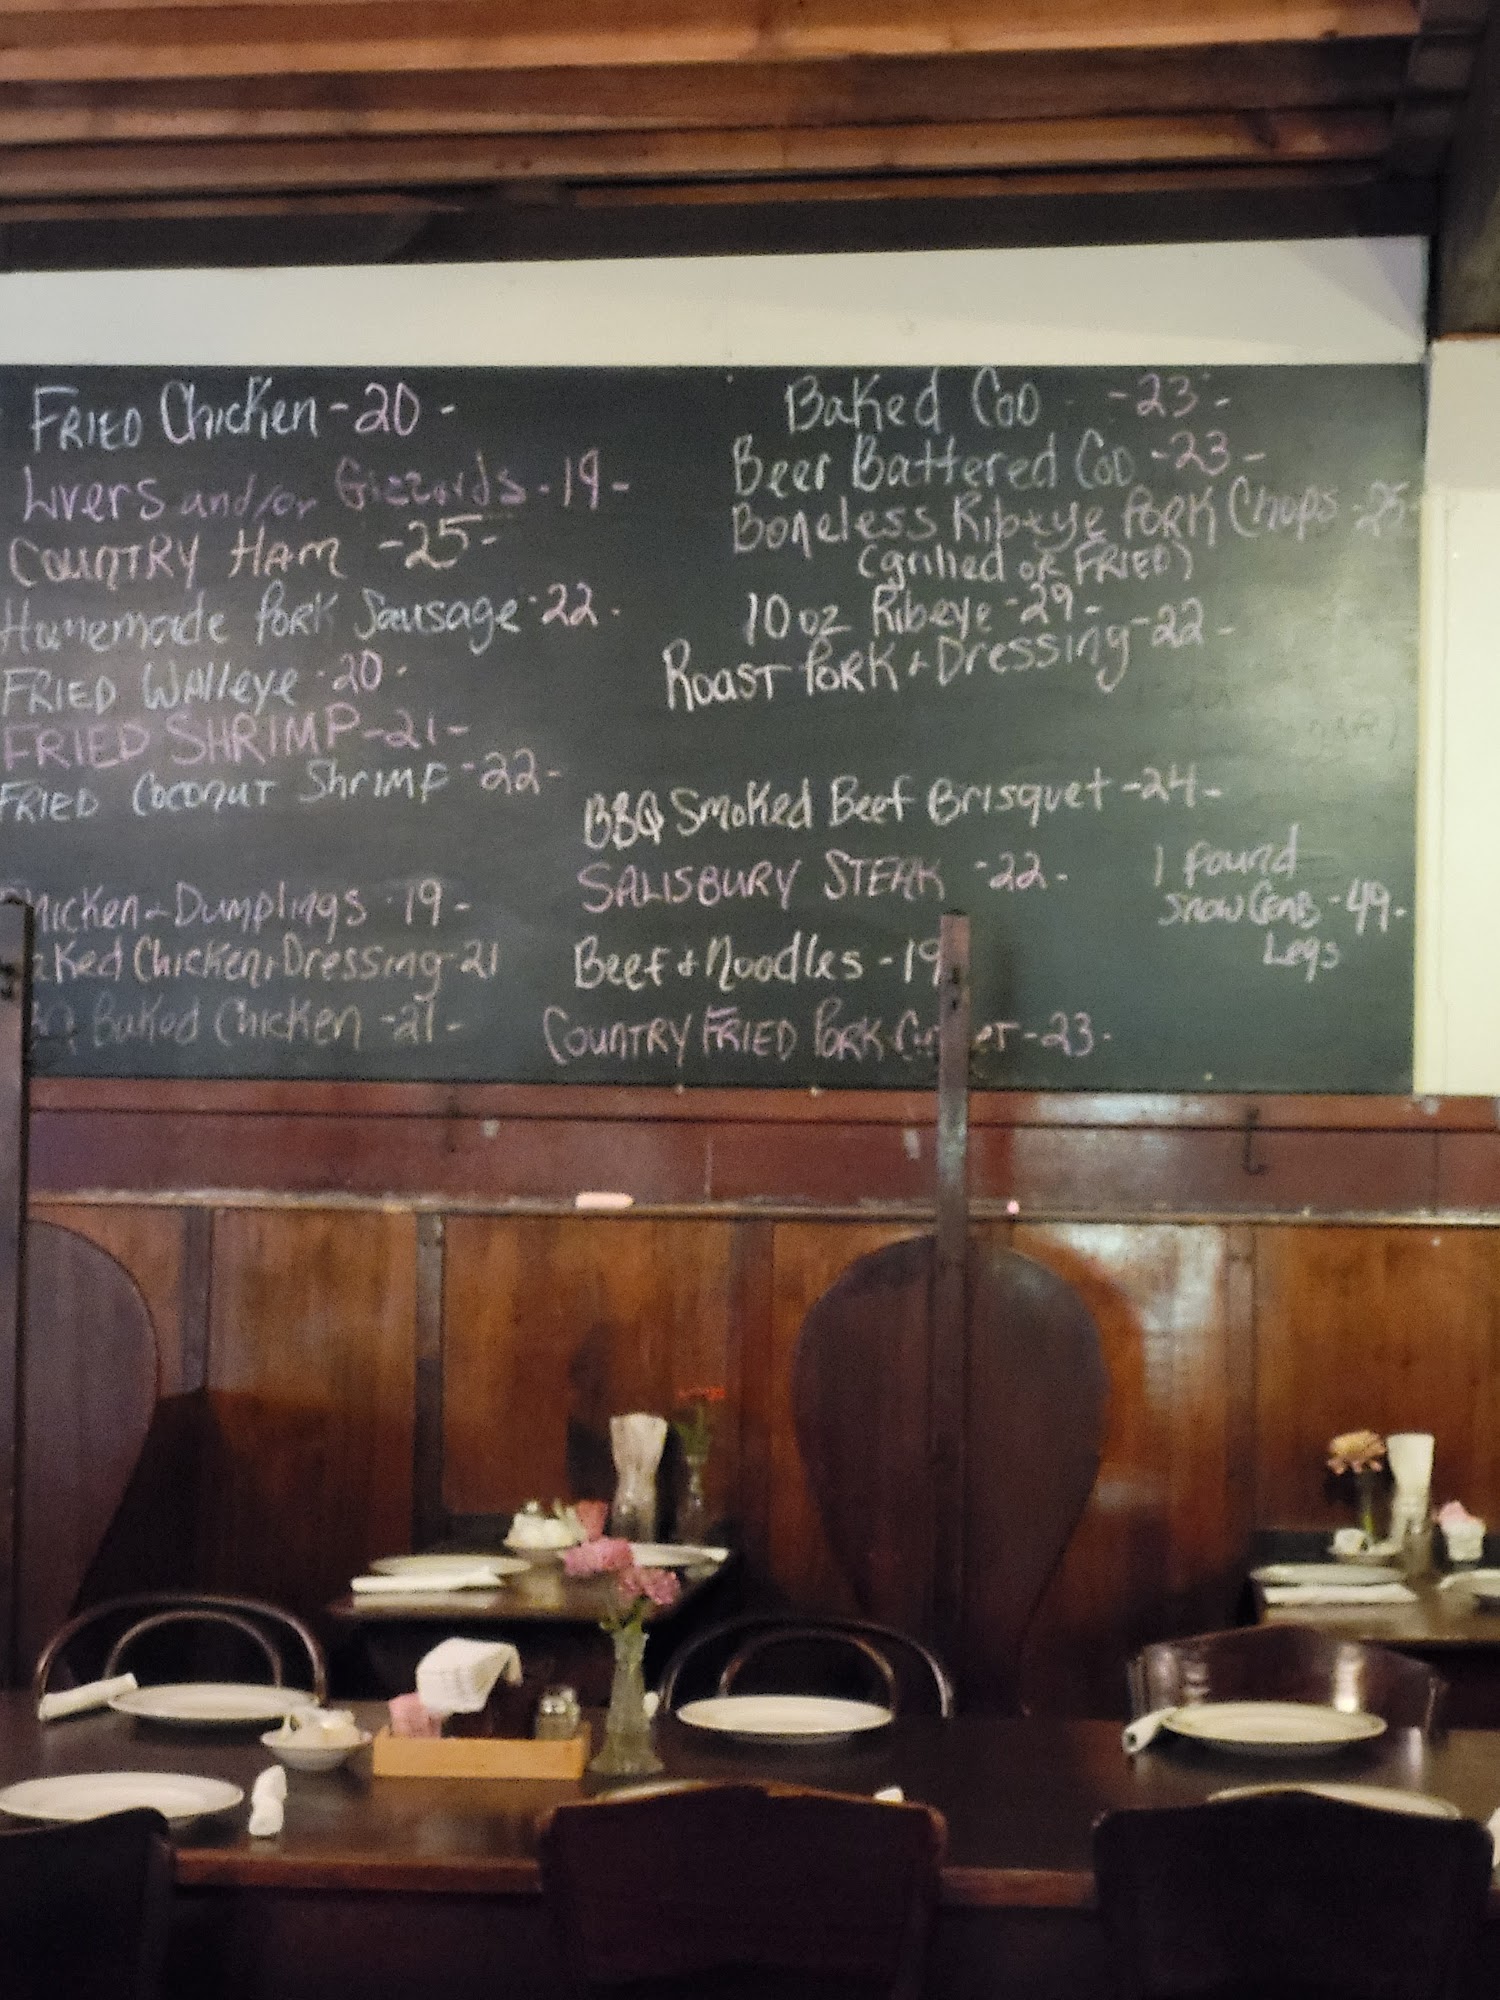 FRIED Chicken -20-
Livers and/or Gizzards -19-
COUNTRY HAM -25-
Homemade PORK Sausage -22-
FRIED Walleye -20-
FRIED SHRIMP -21-
FRIED COCONUT SHRIMP -22-
Chicken + Dumplings -19-
Baked Chicken + Dressing -21
BBQ Baked Chicken -21-
Baked COD -23-
Beer Battered COD -23-
Boneless Ribeye PORK Chops -25-
(grilled or FRIED)
10 oz Ribeye -29-
ROAST PORK + Dressing -22-
BBQ Smoked Beef Brisquet -24-
SALISBURY STEAK -22-
Beef + Noodles -19
COUNTRY FRIED PORK -23-
1 Pound
Snow Crab -49-
Legs